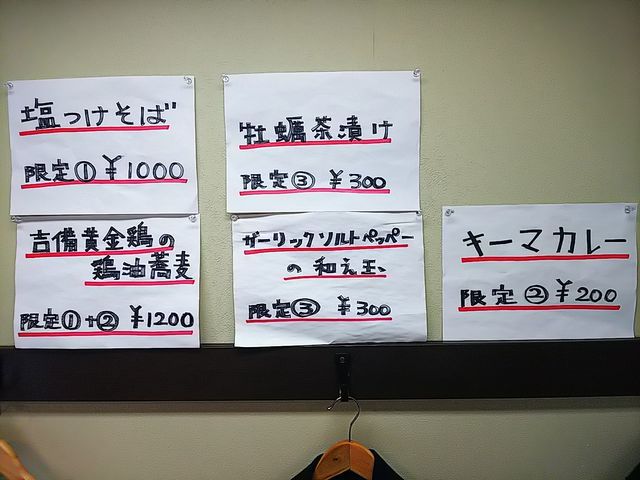 塩つけそば
限定① ¥1000
牡蠣茶漬け
限定③ ¥300
吉備黄金鶏の
鶏油蕎麦
限定①+② ¥1200
ガーリックソルトペッパー
の和え玉
限定③ ¥300
キーマカレー
限定② ¥200